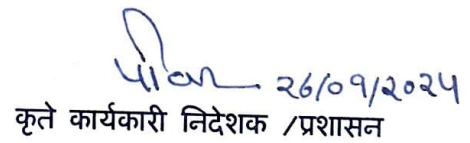 २६/०९/२०२५
कृते कार्यकारी निदेशक /प्रशासन